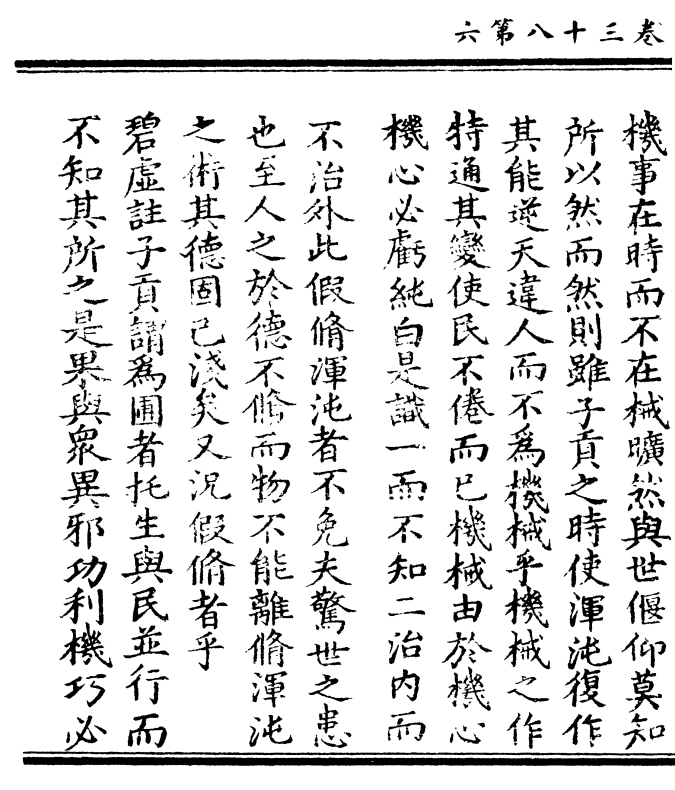 卷三十八第六
機事在時而不在械曠然與世偃仰莫知
所以然而然則雖子貢之時使渾沌復作
其能逆天違人而不為機械乎機械之作
特通其變使民不倦而已機械由於機心
機心必虧純白是識一而不知二治內而
不治外此假脩渾沌者不免夫驚世之患
也至人之於德不脩而物不能離脩渾沌
之術其德固已淺矣又況假脩者乎
碧虛註子貢謂為圃者托生與民並行而
不知其所之是果與眾異邪功利機巧必